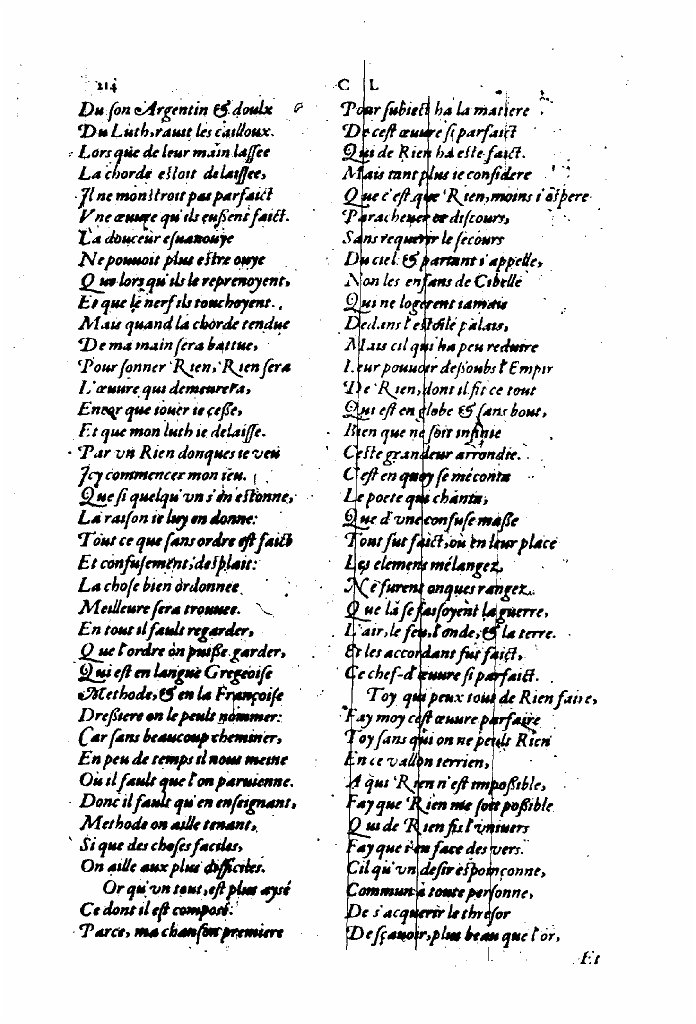 214 C L
Du ſon Argentin & doulx
Du Luth, rauit les cailloux.
Lors que de leur main laſſee
La chorde eſtoit delaiſſee,
Il ne monſtroit pas parfaict
Vne œuure qu'ils euſſent faict.
La douceur eſuanouye
Ne pouuoit plus eſtre ouye
Que lors qu'ils le reprenoyent,
Et que le nerf ils touchoyent.
Mais quand la chorde tendue
De ma main ſera battue,
Pour ſonner Rien, Rien ſera
L'œuure qui demeurera,
Encor que iouer ie ceſſe,
Et que mon luth ie delaiſſe.
Par vn Rien donques ie veu
Icy commencer mon ieu.
Que ſi quelqu'vn s'en eſtonne,
La raiſon ie luy en donne:
Tout ce que ſans ordre eſt faict
Et confuſement, deſplait:
La choſe bien ordonnee
Meilleure ſera trouuee.
En tout il fault regarder,
Que l'ordre on puiſſe garder,
Qui eſt en langue Gregeoiſe
Methode, & en la Françoiſe
Dreſſiere on le peult nommer:
Car ſans beaucoup cheminer,
En peu de temps il nous meine
Où il fault que l'on paruienne.
Donc il fault qu'en enſeignant,
Methode on aille tenant,
Si que des choſes faciles,
On aille aux plus difficiles.
Or qu'vn tout, eſt plus aysé
Ce dont il eſt composé:
Parce, ma chanſon premiere
Pour ſubiect ha la matiere
De ceſt œuure ſi parfaict
Qui de Rien ha eſte faict.
Mais tant plus ie conſidere
Que c'eſt que Rien, moins i'aſpere
Paracheuer ce diſcours,
Sans requerir le ſecours
Du ciel & partant i'appelle,
Non les enfans de Cibelle
Qui ne logerent iamais
Dedans l'eſtoilé palais,
Mais cil qui ha peu reduire
Leur pouuoir deſſoubs l'Empir
De Rien, dont il fit ce tout
Qui eſt en globe & ſans bout,
Bien que ne ſoit infinie
Ceſte grandeur arrondie.
C'eſt en quoy ſe méconta
Le poete qui chanta,
Que d'vne confuſe maſſe
Tout fut faict, où en leur place
Les elemens mélangez,
N'e furent onques rangez.
Que là ſe faiſoyent la guerre,
L'air, le feu, l'onde, & la terre.
Et les accordant fut faict,
Ce chef-d'œuure ſi parfaict.
Toy qui peux tout de Rien faire,
Fay moy ceſt œuure parfaire
Toy ſans qui on ne peult Rien
En ce vallon terrien,
A qui Rien n'eſt impoſſible,
Fay que Rien me ſoit poſſible
Qui de Rien fis l'vniuers
Fay que i'en face des vers.
Cil qu'vn deſir eſpoinçonne,
Commun à toute perſonne,
De s'acquerir le threſor
De ſçauoir, plus beau que l'or,
Et